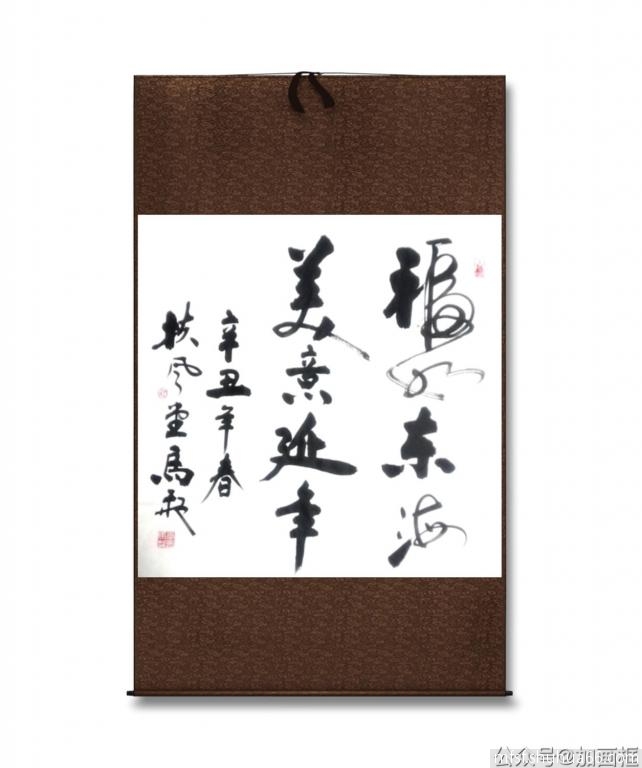 福如东海
美意延年
辛丑年春
扶风堂馬
公众号@加画框